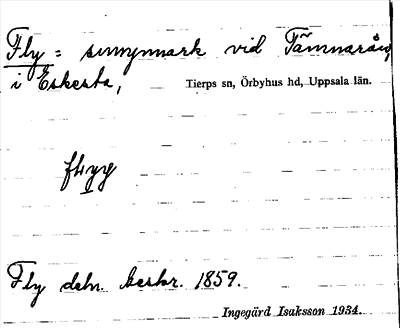 Fly = sumpmark vid Tämnarån,
i Eskesta, Tierps sn, Örbyhus hd, Uppsala län.
flyg
Fly deln. beskr. 1859.
Ingegärd Isaksson 1934.